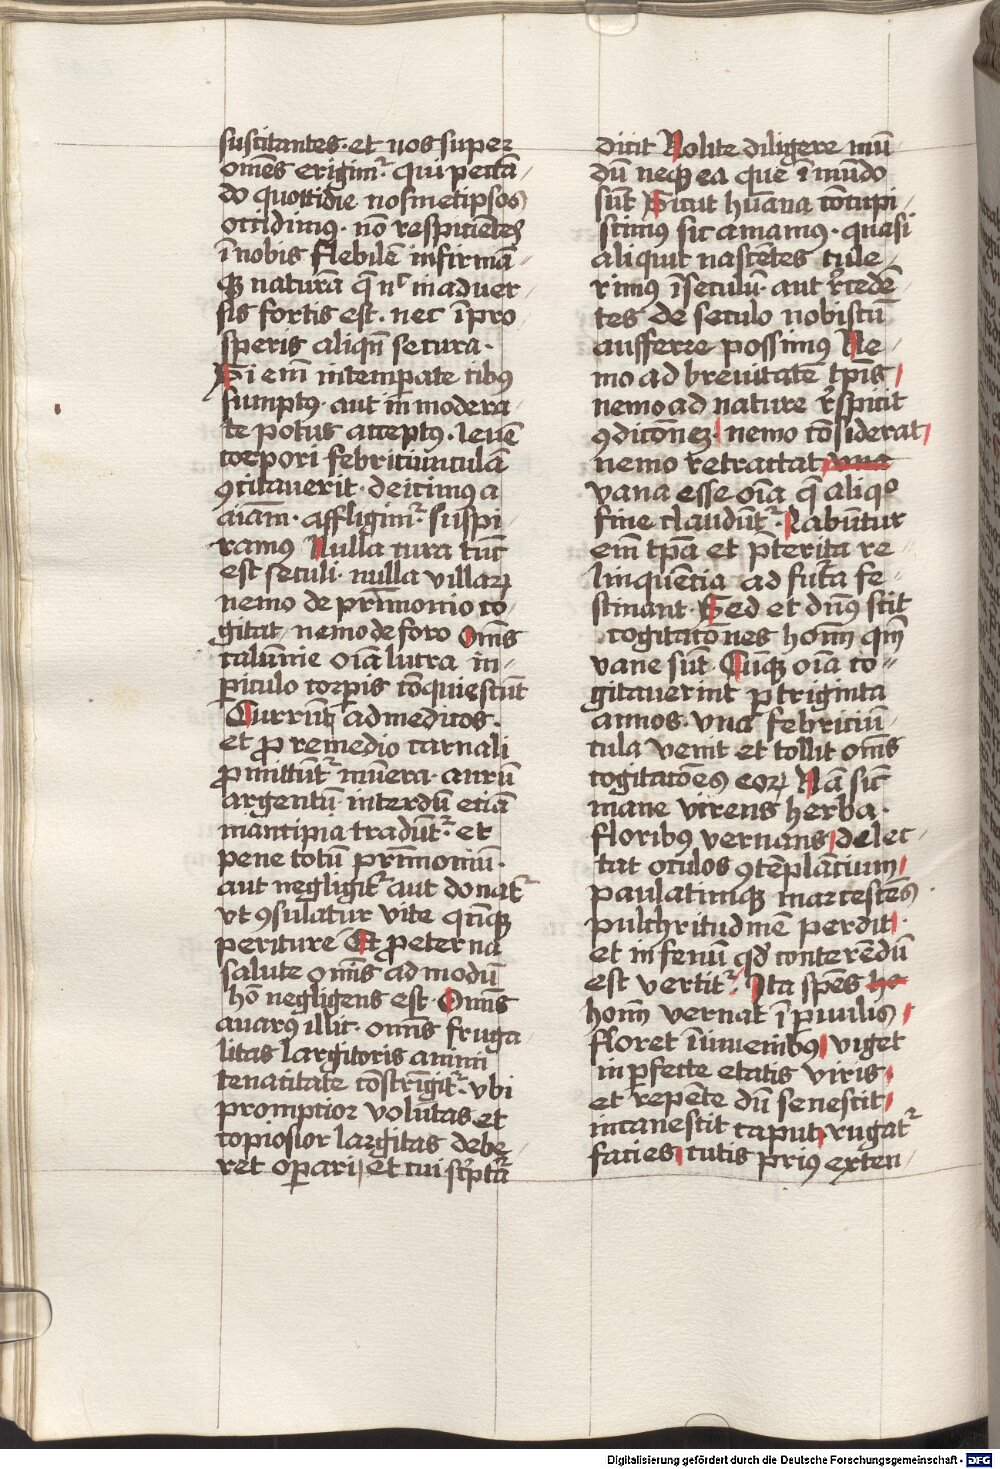 suscitantes · et nos super
om̄es erigim᷑ · qui pecca͞
do quottidie nosmetipsos
occidimus · no͞ respicientes
i͞ nobis flebile͞ infirma͞
qꝫ natura͞ q̄ nͨ in aduer
sis fortis est · nec i͞ pro
speris aliqn͞ secura ·
Si em͞ intemperate cibꝰ
sumptꝰ · aut in modera
te potus acceptꝰ · leue͞
corpori febriciuncula͞
ꝯcitauerit · deicimus a
aia͞m · affligim᷑ · suspi
ramꝰ Nulla cura tu͞c
est seculi · nulla villaꝝ
nemo de pri͞monio co
gitat / nemo de foro Om͞s
calu͞nie oi͞a lucra in
ꝑiculo corpis co͞quiescu͞t
Currit͛ ad medicos ·
et ꝓ remedio carnali
ꝓmittu͞t᷑ mu͞era · auru͞
argentu͞ · interdu͞ etia͞
mancipia tradu͞t᷑ · et
pene totu͞ pri͞moniu͞ ·
aut negligit᷑ aut donat᷑
vt ꝯsulatur vite qn͞qꝫ
periture Et ꝓ eterna
salute om͞is ad modu͞
ho͞ negligens est · Om͞is
auarꝰ illic · om͞is fruga
litas largitoris animi
tenacitate co͞stri͞git᷑ · vbi
promptior volu͞tas et
copiosior largitas debe
ret oꝑari / et cui sc͛pta͞
dicit Nolite diligere mu͞
du͞ neqꝫ ea que i͞ mu͞do
su͞t Sicut hu͞ana co͞cupi
scimus sic amamus · quasi
aliquit nasce͞tes tule
rimus i͞ seculu͞ · aut r͛cede͞
tes de seculo nobiscu͞
aufferre possimꝰ Ne
mo ad breuitate͞ tp͞is
nemo ad nature r͛spicit
ꝯdico͞nez · nemo co͞siderat
nemo retractat una
vana esse oi͞a q̄ aliqͦ
fine claudu͞t᷑ · Labu͞tur
em͞ tp͞a et p͞terita re
linque͞tia ad futa fe
stinant · Sed et dn͞us scit
cogitaco͞nes hom͞ qm͞
vane su͞t Cu͞qꝫ oi͞a co
gitauerint ꝑ triginta
annos · vna febriciu͞
cula venit et tollit om͞s
cogitaco͞es eoꝝ Na͞ sic͛
mane virens herba ·
floribꝰ vernans / delec
tat oculos ꝯte͞pla͞cium
paulatimqꝫ marcesce͞s
pulchritudine͞ perdit ·
et in fenu͞ qđ contere͞du͞
est vertit᷑ · Ita sp͞es ho
hom͞ vernat i͞ ꝑuulis
floret i͞ iuuenibꝰ viget
in ꝑfecte etatis viris
et repe͞te du͞ senescit
incanescit caput / rugat᷑
facies / cutis priꝰ exten
Digitalisierung gefördert durch die Deutsche Forschungsgemeinschaft - DFG